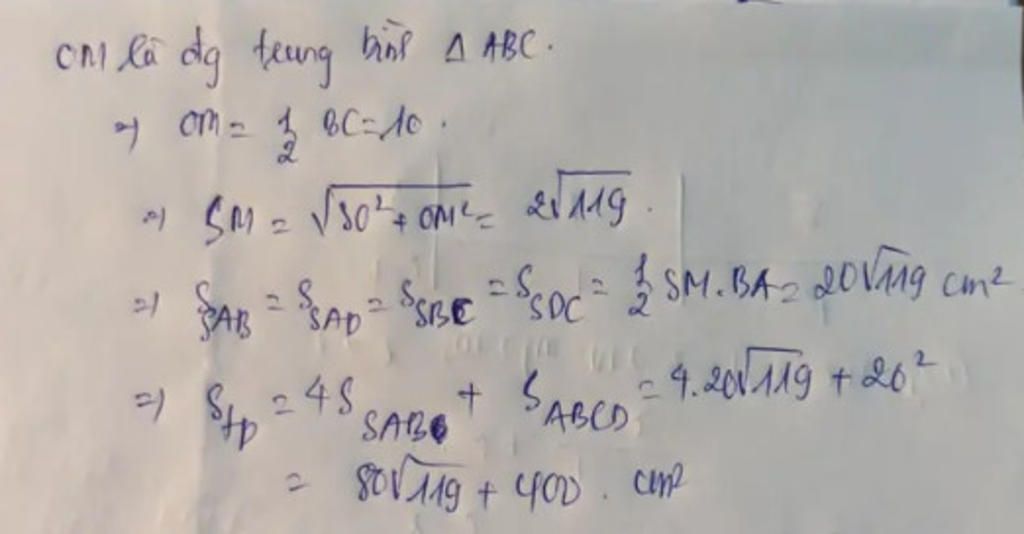 OM là đg trung bình Δ ABC.
=> OM = 1/2 BC = 10.
=> SM = √(SO² + OM²) = 2√119.
=> S_SAB = S_SAD = S_SBC = S_SDC = 1/2 SM.BA = 20√119 cm²
=> S_tp = 4S_SAB + S_ABCD = 4.20√119 + 20²
= 80√119 + 400. cm²